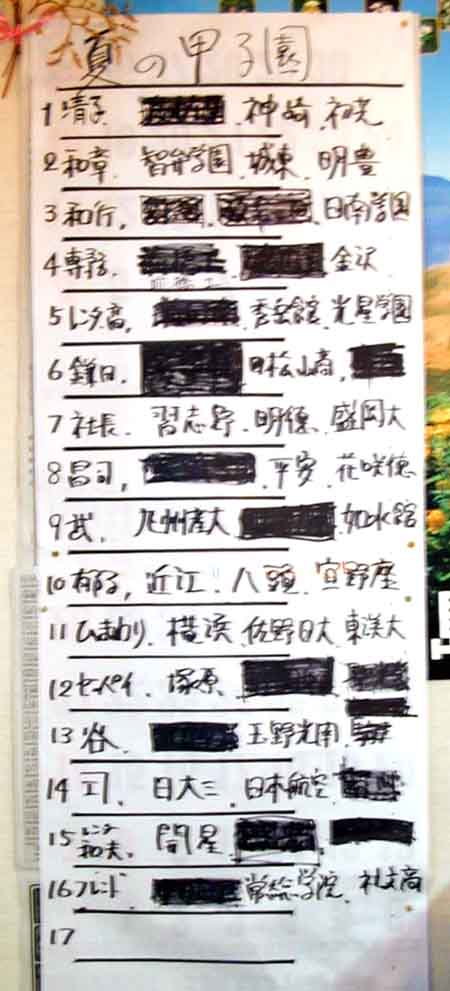 夏の甲子園
1 清子. 神崎.
2 和章 智弁学園 城東 明豊
3 和行, 日南学園
4 専務, 金沢
5 レンタ高, 秀岳館, 光星学園
6 鎌田. 松山商,
7 社長. 習志野. 明徳. 盛岡大
8 昌司, 平安. 花咲徳
9 武. 九州産大 如水館
10 近江. 八頭. 宜野座
11 ひまわり. 横浜. 佐野日大. 東洋大
12 センパイ. 塚原.
13 谷. 玉野光南.
14 司, 日大三. 日本航空.
15 レンタ 和夫. 開星
16 フレンド 常総学院.
17